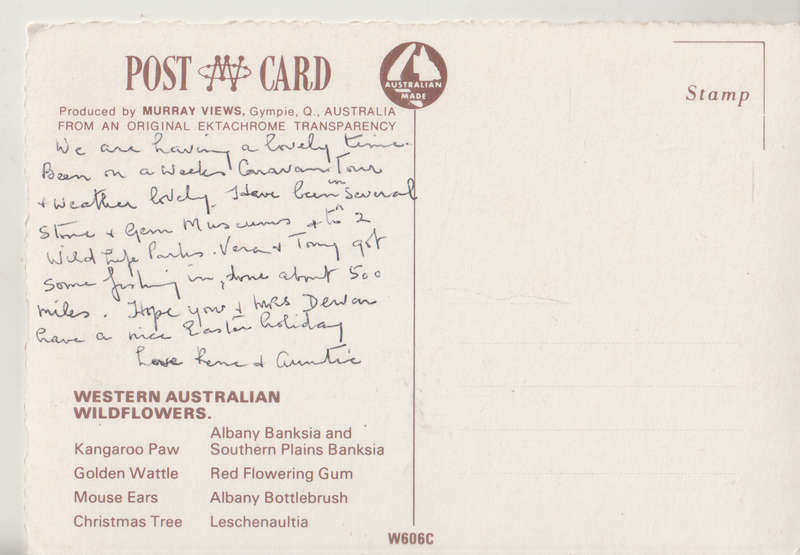 POST CARD
AUSTRALIAN
MADE
Stamp
Produced by MURRAY VIEWS, Gympie, Q., AUSTRALIA
FROM AN ORIGINAL EKTACHROME TRANSPARENCY
We are having a lovely time.
Been on a weeks Caravan Tour
& weather lovely. Have been in several
Stone & Gem Museums & to 2
Wild Life Parks. Vera & Tony got
some fishing in, done about 500
miles. Hope you & MRS Dewar
have a nice Easter holiday
Love Rene & Auntie
WESTERN AUSTRALIAN
WILDFLOWERS.
Kangaroo Paw
Golden Wattle
Mouse Ears
Christmas Tree
Albany Banksia and
Southern Plains Banksia
Red Flowering Gum
Albany Bottlebrush
Leschenaultia
W606C